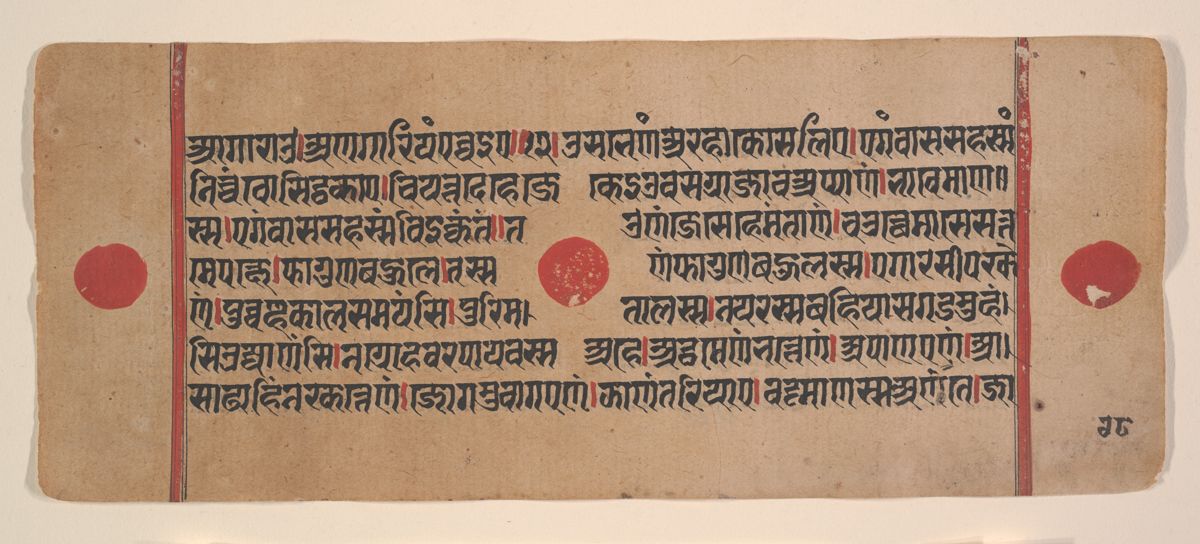 आगाराउ।अणगारियंपव्वइए॥ उसभेणंअरहाकोसलिए।एगंवाससहस्सं
निच्चंवोसिट्ठकाए।चियत्तदेहे।जे केइउवसग्गा।जावअप्पाणं।भावेमाण॥
स्स।एगंवाससहस्संविइक्कंतं॥त उणंजेसेहेमंताणं।चउत्थेमासेसत्त
मेपक्खे।फागुणबहुले।तस्स णंफागुणबहुलस्स।एगारसीपरके
णं।पुव्वण्हकालसमयंसि।पुरिम। तालस्स।नयरस्सबहियासगडमुहं।
सिउज्जाणंसि।नग्गोहवरपायवस्स अहे।अट्ठमेणंभत्तेणं।अपाणएणं।आ॥
साढाहिंनरकत्तेणं।जोगमुवागएणं।झाणंतरियाए।वट्टमाणस्सअणंते।जा